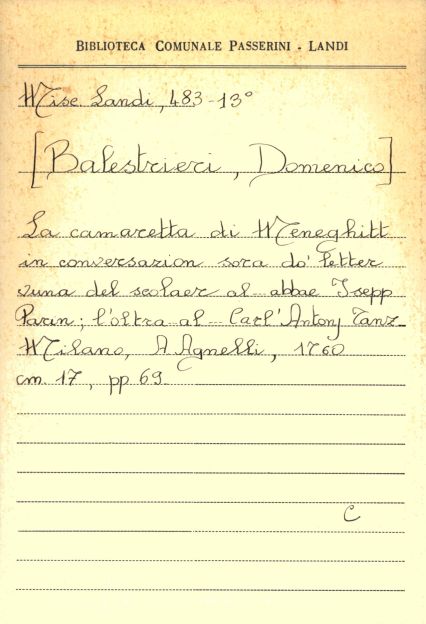 BIBLIOTECA COMUNALE PASSERINI - LANDI
Misc. Landi, 483-13°
[Balestrieri, Domenico]
La camaretta di Meneghitt
in conversazion sora do' letter
vuna del scolaer al abbae Isepp
Parin; l'oltra al Carl'Antony Tanz
Milano, A Agnelli, 1760
cm. 17, pp 69
C